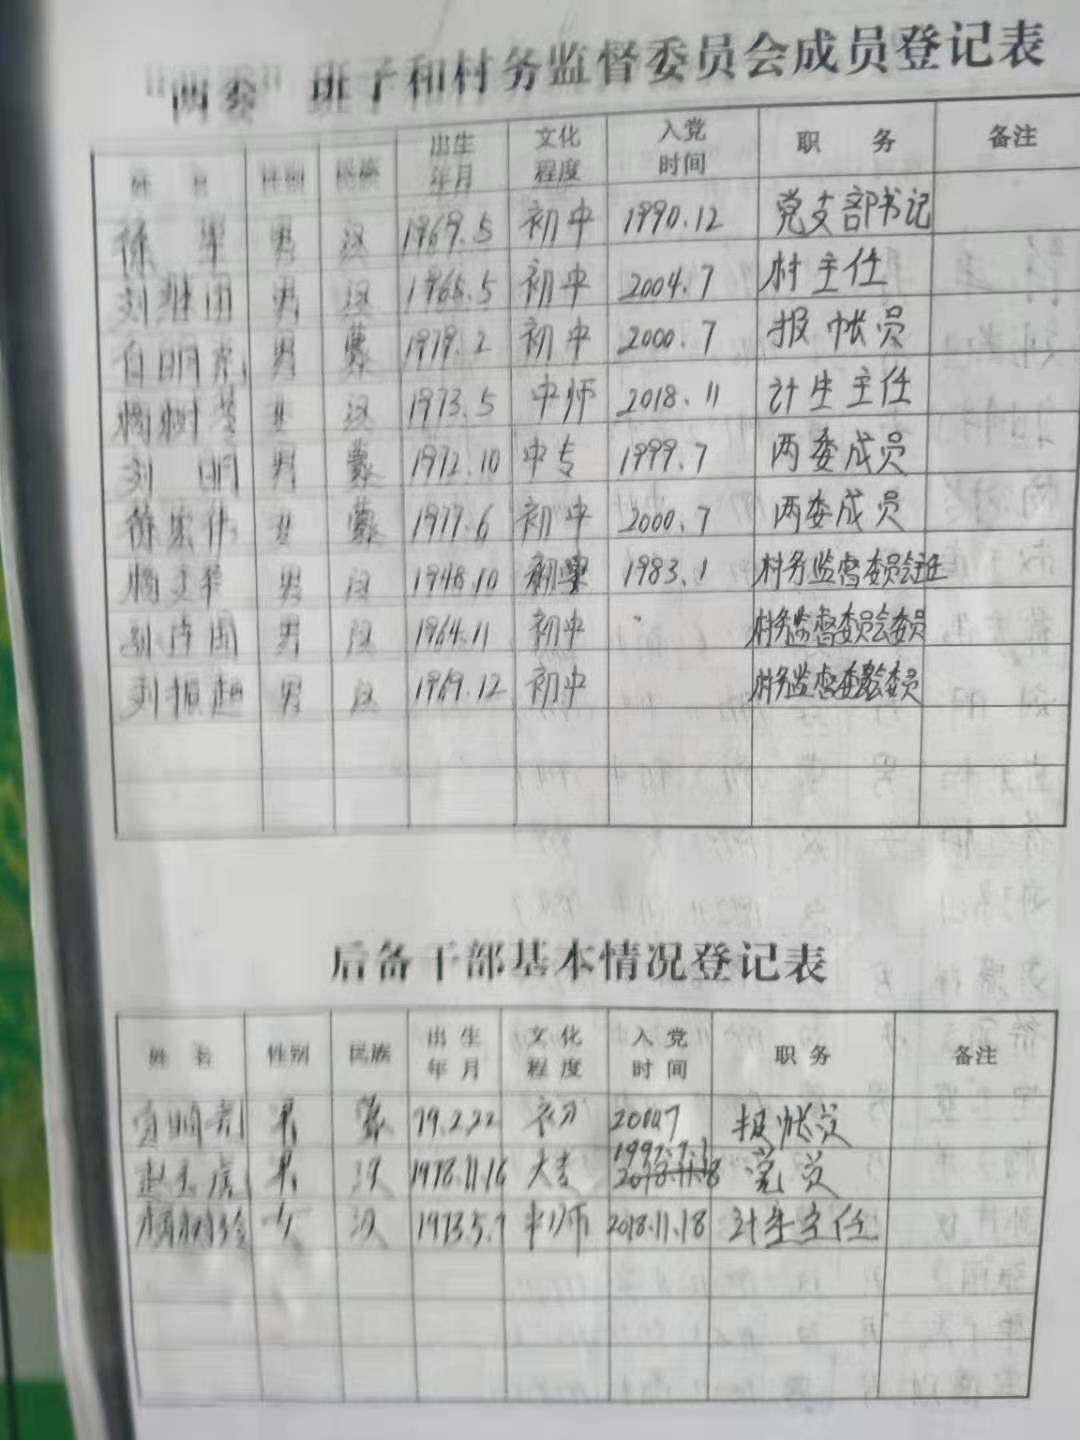 "两委"班子和村务监督委员会成员登记表
姓名 性别 民族 出生年月 文化程度 入党时间 职务 备注
徐 男 汉 1969.5 初中 1990.12 党支部书记
刘继国 男 汉 1965.5 初中 2004.7 村主任
白明亮 男 蒙 1979.2 初中 2000.7 报帐员
杨树 女 汉 1973.5 中师 2018.11 计生主任
刘明 男 蒙 1972.10 中专 1999.7 两委成员
徐宏伟 蒙 1977.6 初中 2000.7 两委成员
杨文华 男 汉 1948.10 1983.1 村务监督委员会主任
国 男 汉 1964.11 初中 村务监督委员会委员
刘振超 男 汉 1969.12 初中 村务监督委员会委员
后备干部基本情况登记表
姓名 性别 民族 出生年月 文化程度 入党时间 职务 备注
明 男 蒙 79.2.22 初 2000.7 报帐员
赵玉虎 男 汉 1978.11.16 大专 党员
杨树 女 汉 1973.5.7 中师 2018.11.18 计生主任